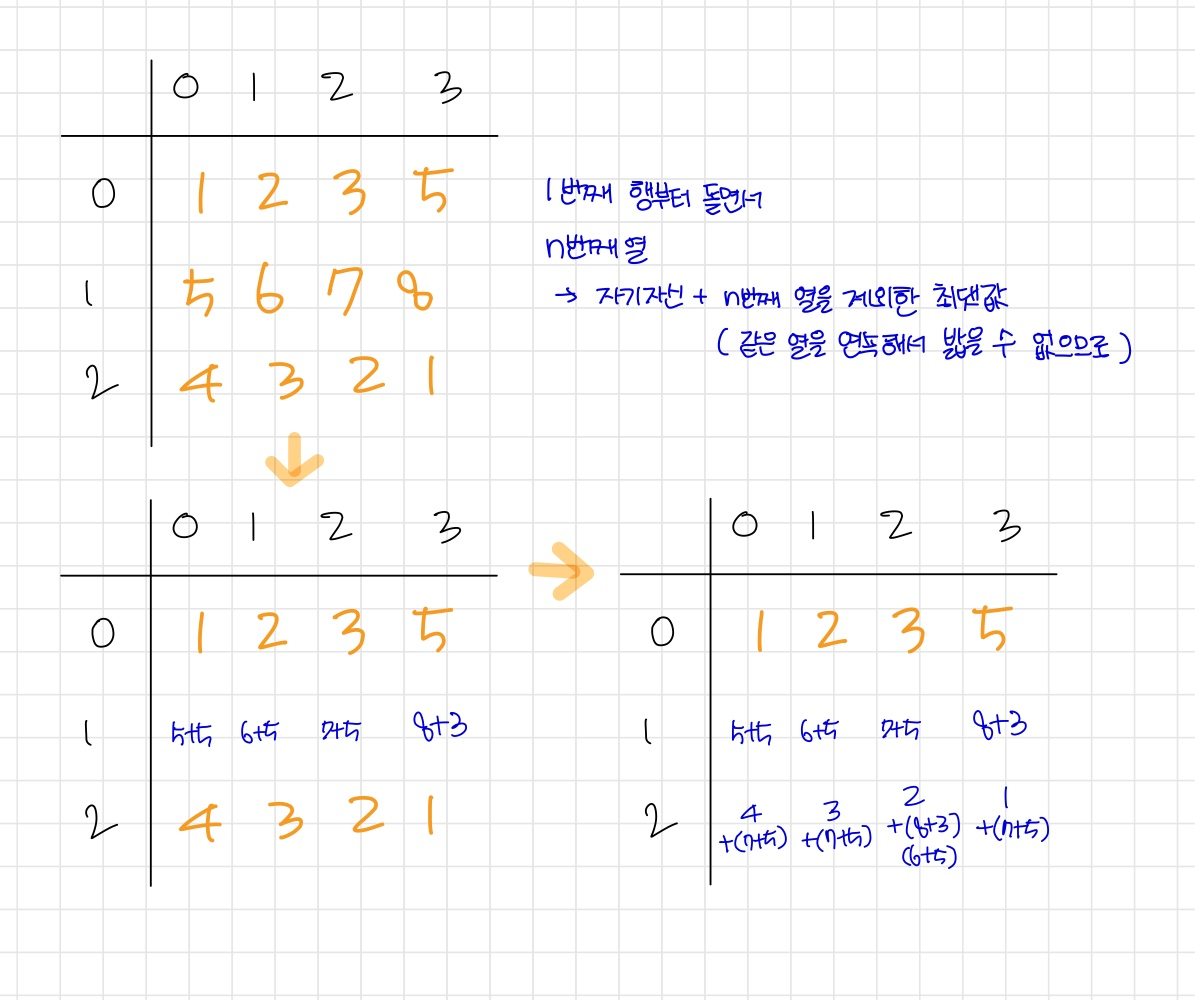 0 1 2 3
0 1 2 3 5
1번째 행부터 돌면서
n번째 열
1 5 6 7 8
→ 자기자신 + n번째 열을 제외한 최댓값
(같은 열을 연속해서 밟을 수 없으므로)
2 4 3 2 1
0 1 2 3
0 1 2 3 5
1 5+5 6+5 7+5 8+3
2 4 3 2 1
0 1 2 3
0 1 2 3 5
1 5+5 6+5 7+5 8+3
2 4 3 2 1
+(7+5) +(7+5) +(8+3) +(7+5)
(6+5)